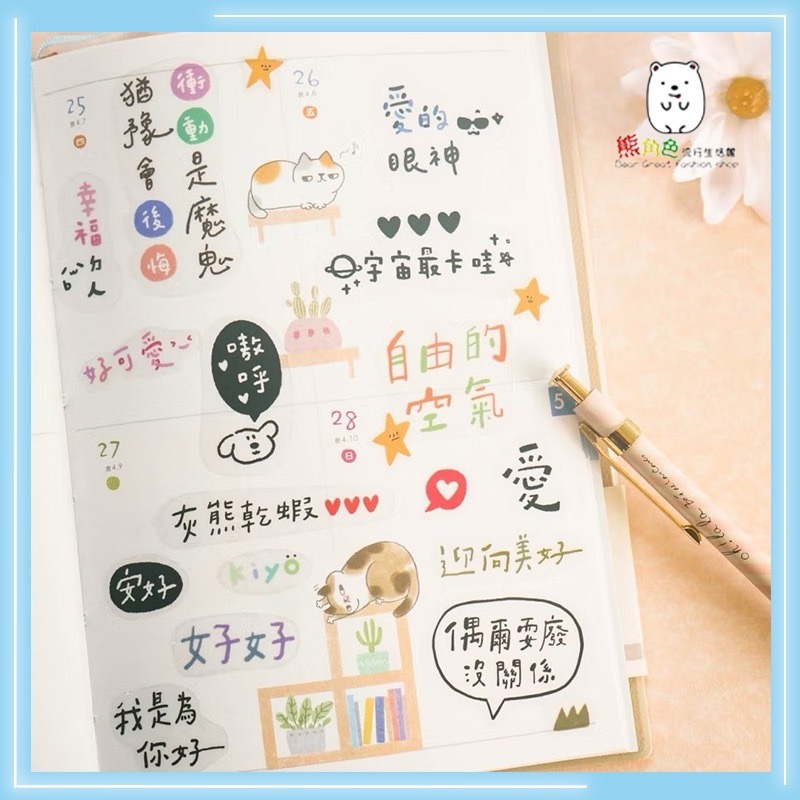 熊角色流行生活館
Bear Great Fashion shop
25
農4.7
四
26
農4.8
五
衝動是魔鬼
猶豫會後悔
幸福的人
愛的
眼神
宇宙最卡哇
好可愛
嗷呼
自由的
空氣
5
27
農4.9
28
農4.10
日
灰熊乾蝦
愛
安好
kiyo
迎向美好
女子女子
偶爾耍廢
沒關係
我是為
你好